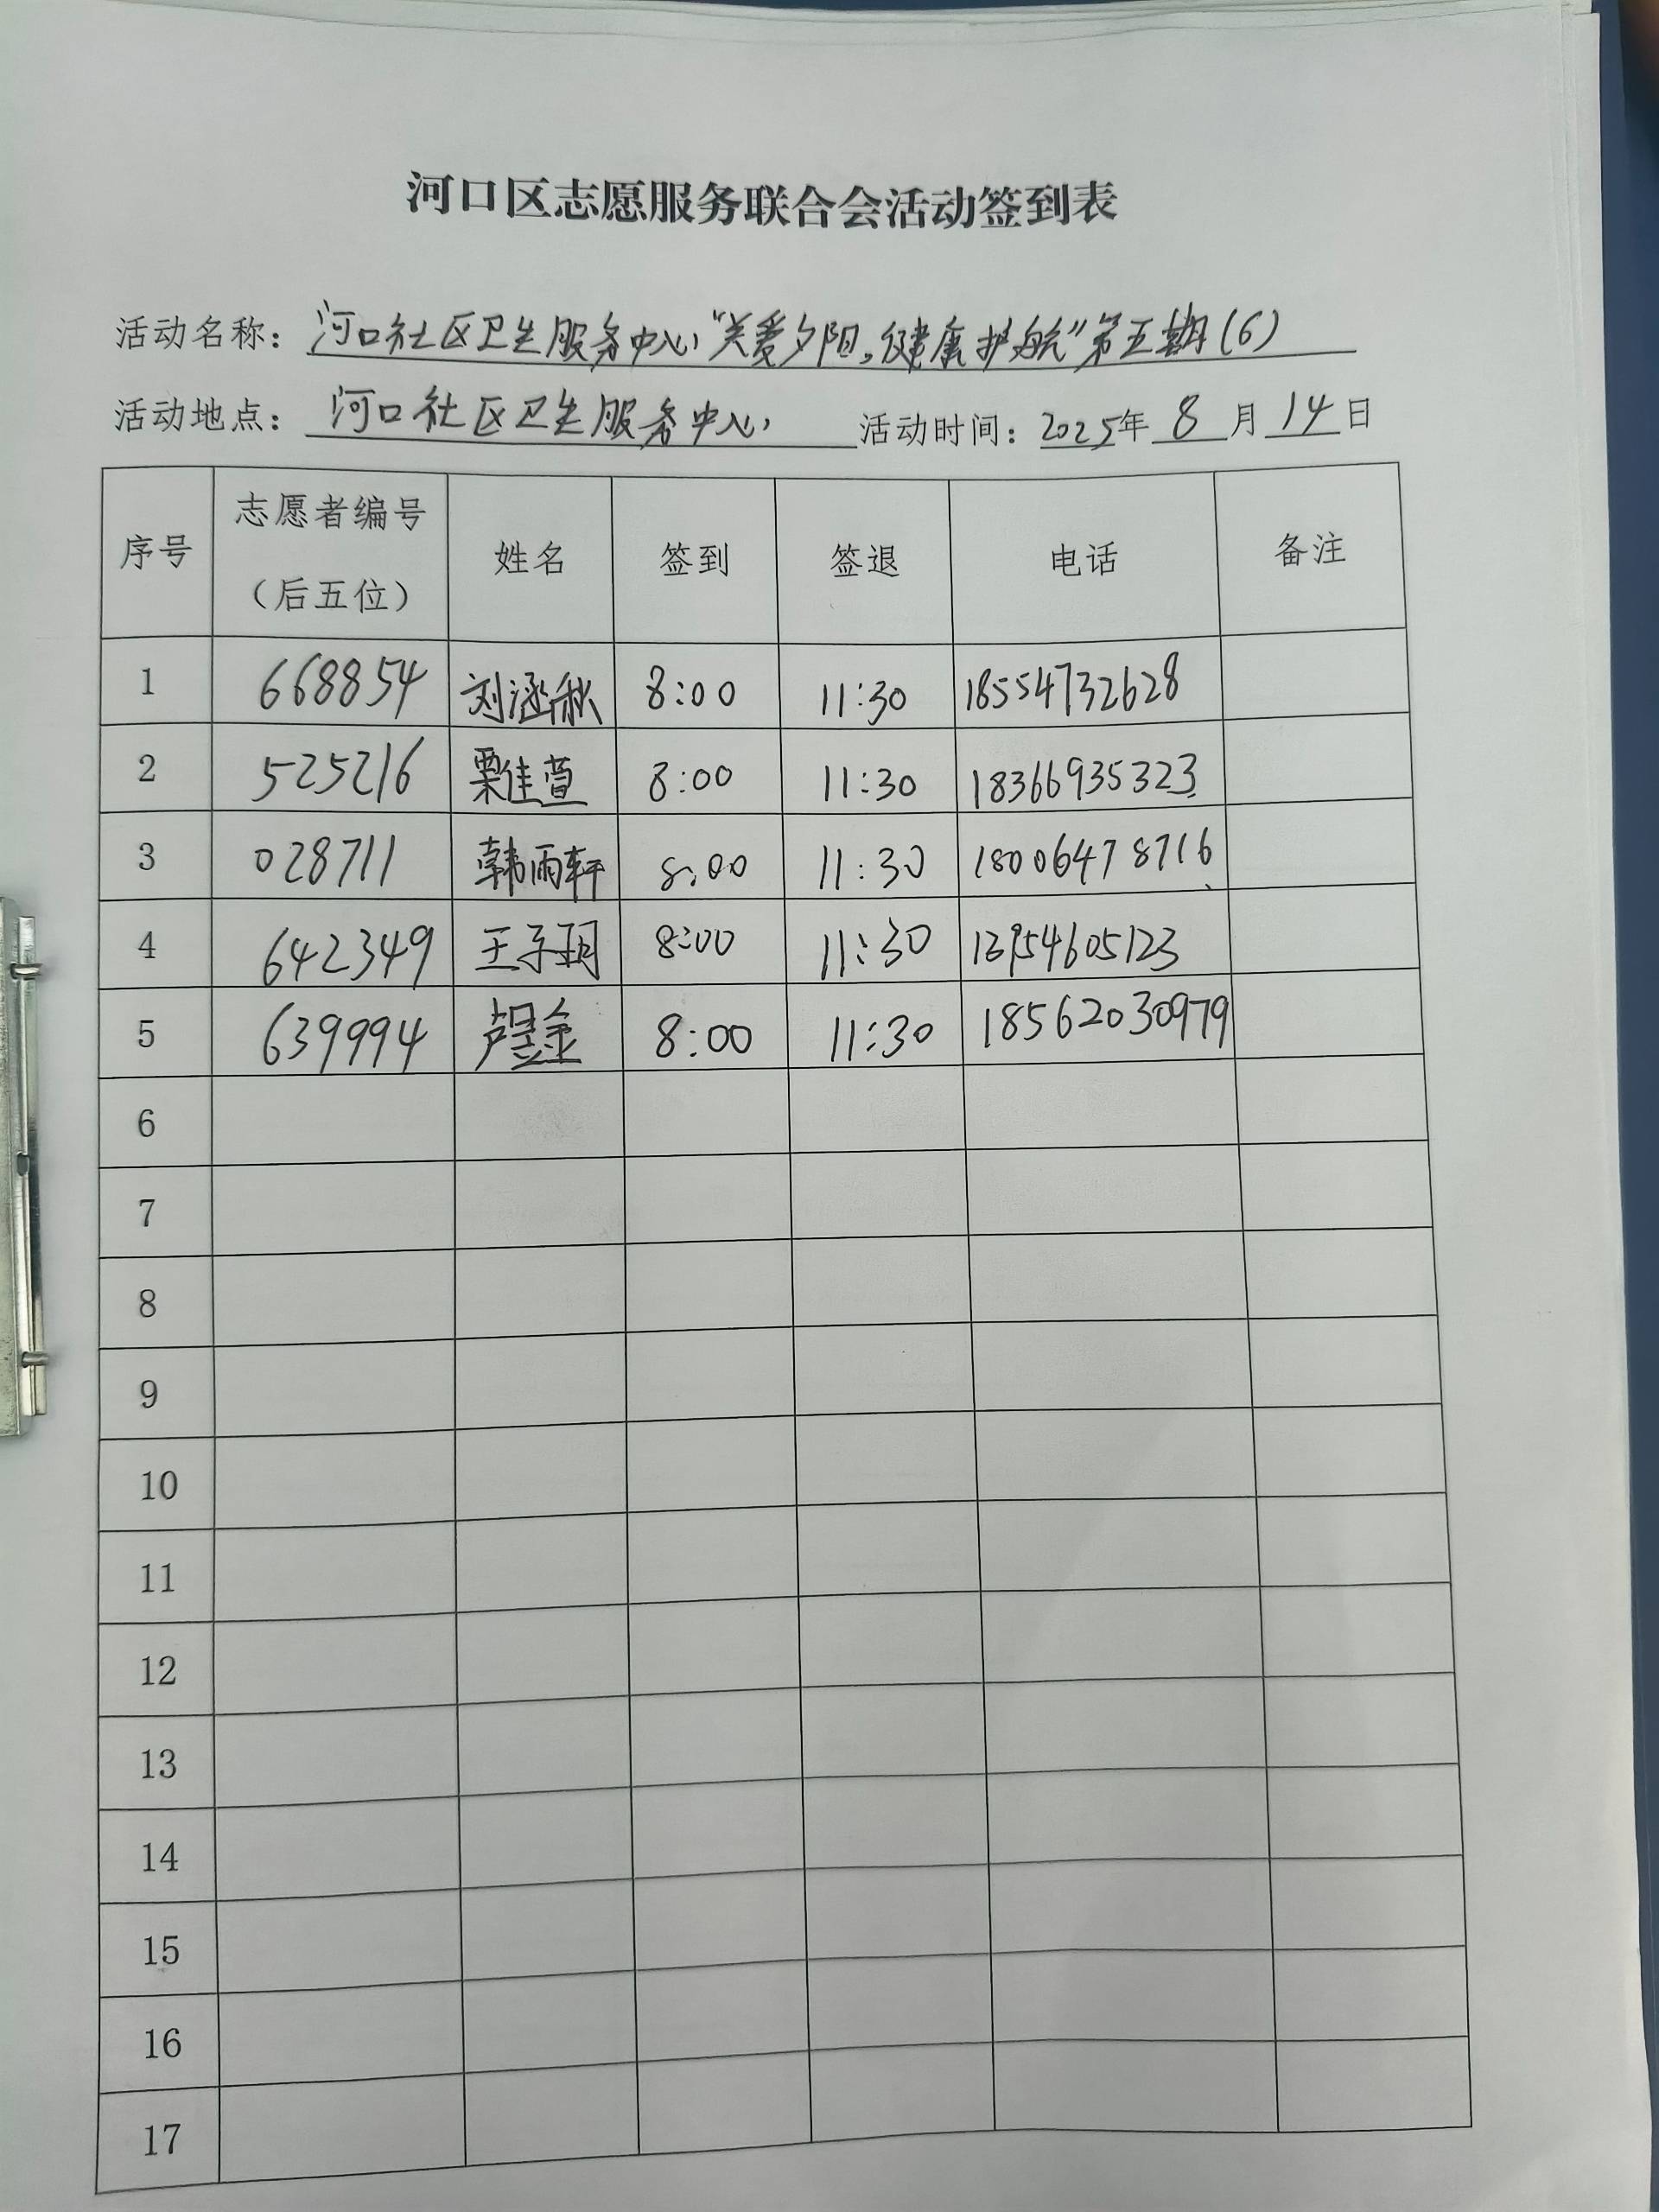 河口区志愿服务联合会活动签到表
活动名称：河口社区卫生服务中心"关爱夕阳，健康护航"第五期(6)
活动地点：河口社区卫生服务中心 活动时间：2025年8月14日
序号 志愿者编号（后五位） 姓名 签到 签退 电话 备注
1 668854 刘涵秋 8:00 11:30 18554732628
2 525216 栗佳萱 8:00 11:30 18366935323
3 028711 韩雨轩 8:00 11:30 18006478716
4 642349 王子玥 8:00 11:30 13954605123
5 639994 8:00 11:30 18562030979
6
7
8
9
10
11
12
13
14
15
16
17